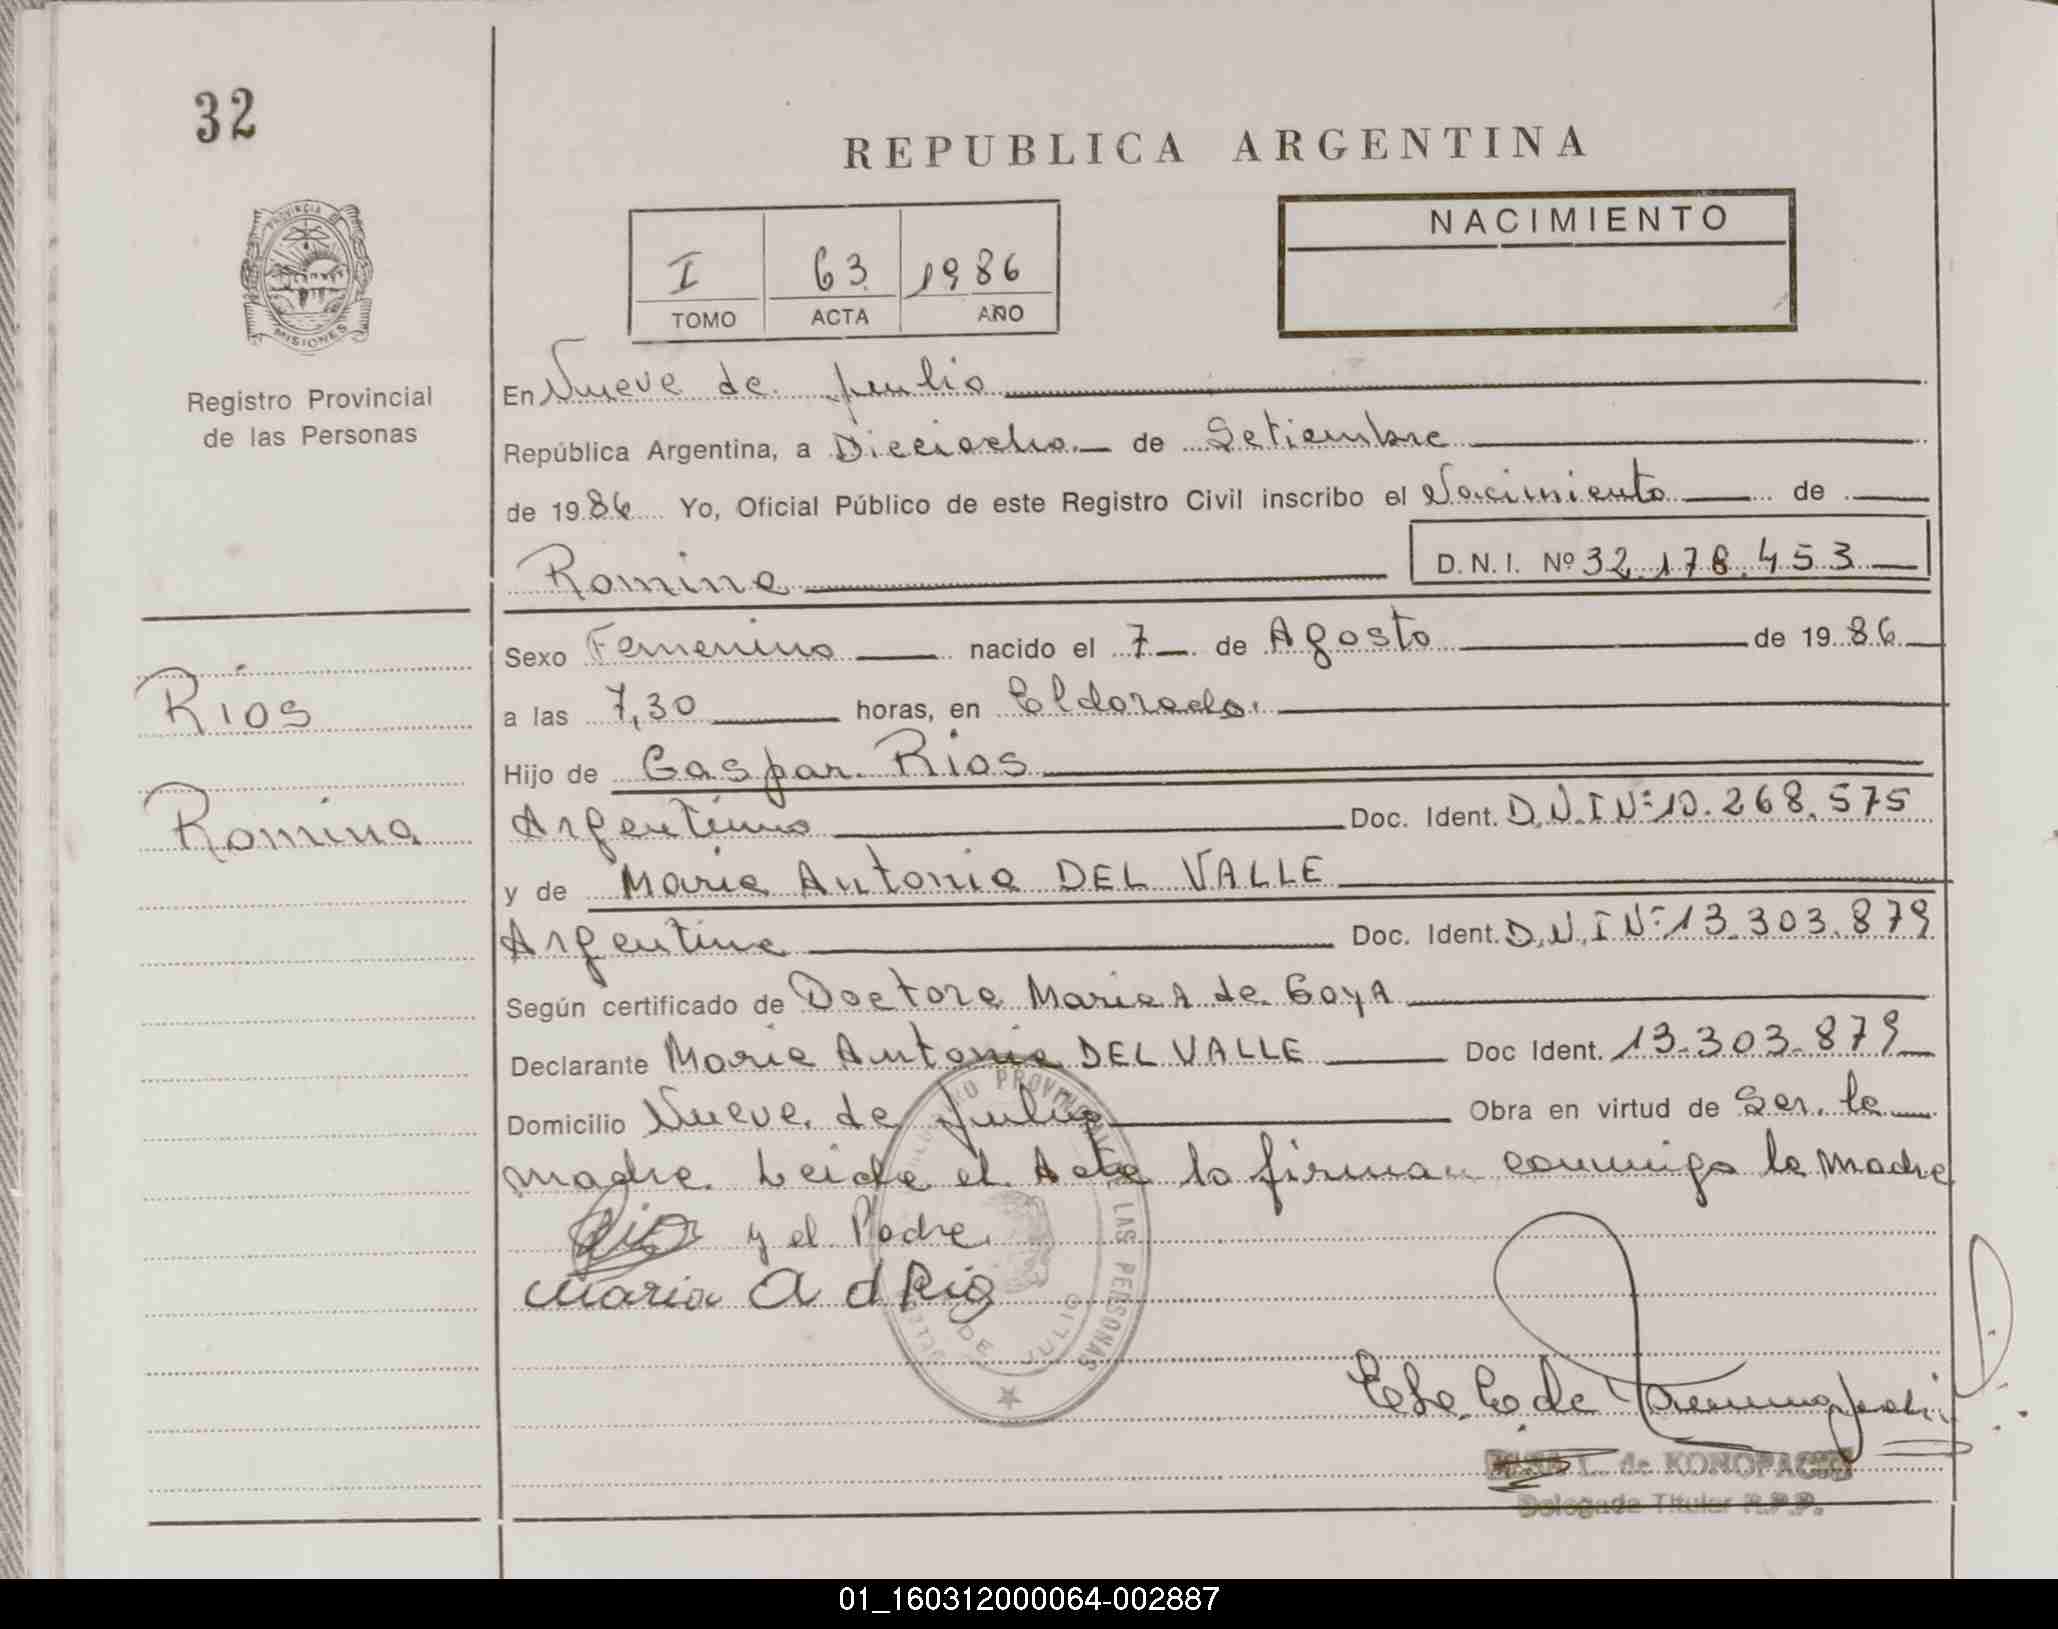 32
REPUBLICA ARGENTINA
PROVINCIA DE
MISIONES
Registro Provincial
de las Personas
I 63 1986
TOMO ACTA AÑO
NACIMIENTO
En Nueve de Julio
República Argentina, a Dieciocho de Setiembre
de 1986 Yo, Oficial Público de este Registro Civil inscribo el Nacimiento de
Romina D.N.I. Nº 32.178.453
Sexo Femenino nacido el 7 de Agosto de 1986
Rios
a las 7,30 horas, en Eldorado.
Hijo de Gaspar Rios
Romina
Argentino Doc. Ident. D.N.I Nº 10.268.575
y de Maria Antonia DEL VALLE
Argentina Doc. Ident. D.N.I Nº 13.303.879
Según certificado de Doctora Maria A de Goya
Declarante Maria Antonia DEL VALLE Doc Ident. 13.303.879
Domicilio Nueve de Julio Obra en virtud de Ser la
madre. Leida el Acta la firman conmigo la Madre
y el Padre.
Maria A d Rios
PROVINCIAL LAS PERSONAS
DE JULIO
de KONOPACKI
Delegada Titular R.P.P.
01_160312000064-002887